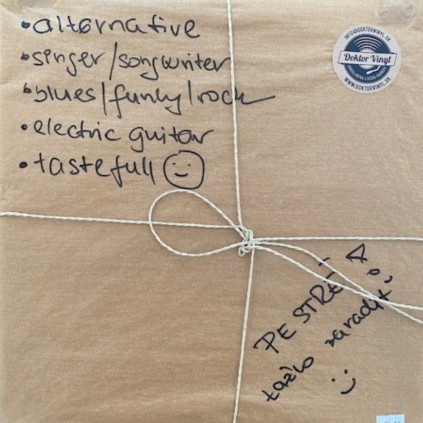 • alternative
• singer/songwriter
• blues/funky/rock
• electric guitar
• tastefull
INFO@DOKTORVINYL.SK
Doktor Vinyl
WWW.DOKTORVINYL.SK
PESTRÉ A
ťažko zaradiť